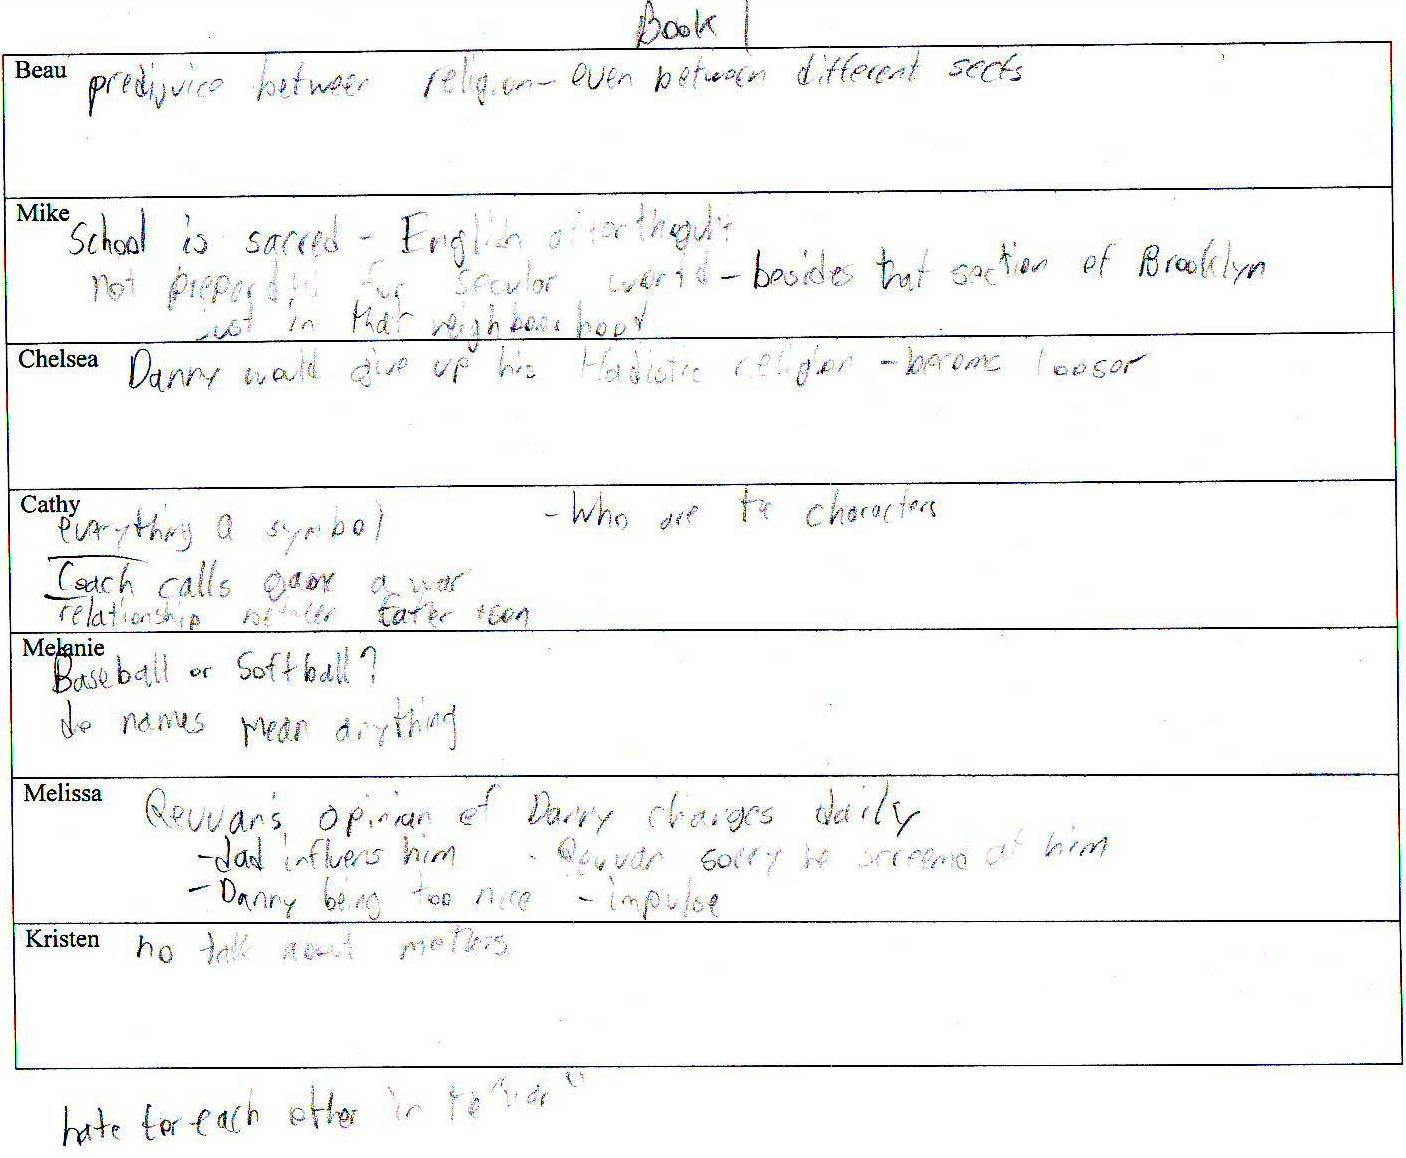 Book 1
Beau predijuice between religion - even between different sects
Mike
School is sacred - English afterthoguht
not prepard for secular world - besides that section of Brooklyn
just in that neighboorhood
Chelsea Danny would give up his religion - become looser
Cathy
everything a symbol - Who are the characters
Coach calls game a war
relationship father + son
Melanie
Baseball or Softball?
do names mean anything
Melissa Reuvan's opinion of Danny changes daily
- dad influens him - Reuvan sorry he at him
- Danny being too nice - impulse
Kristen no talk about mothers
hate for each other in the "war"